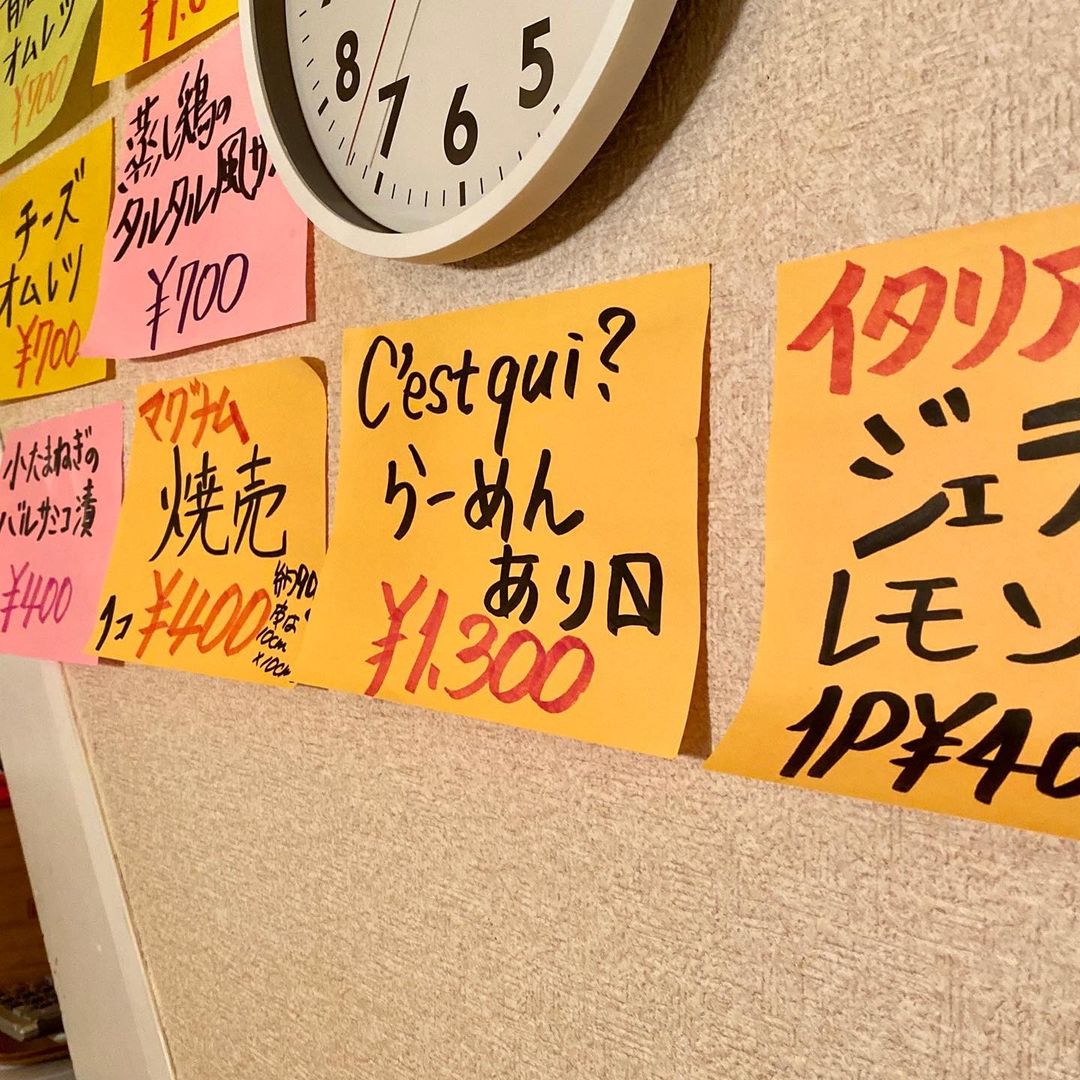 オムレツ
¥700
チーズ
オムレツ
¥700
蒸し鶏の
タルタル風サ
¥700
8
7
6
5
小たまねぎの
バルサミコ漬
¥400
マグナム
焼売
1コ ¥400
約90g
皮は
10cm
×10cm
C'est qui?
らーめん
あり〼
¥1.300
イタリア
ジェラ
レモン
1P¥40